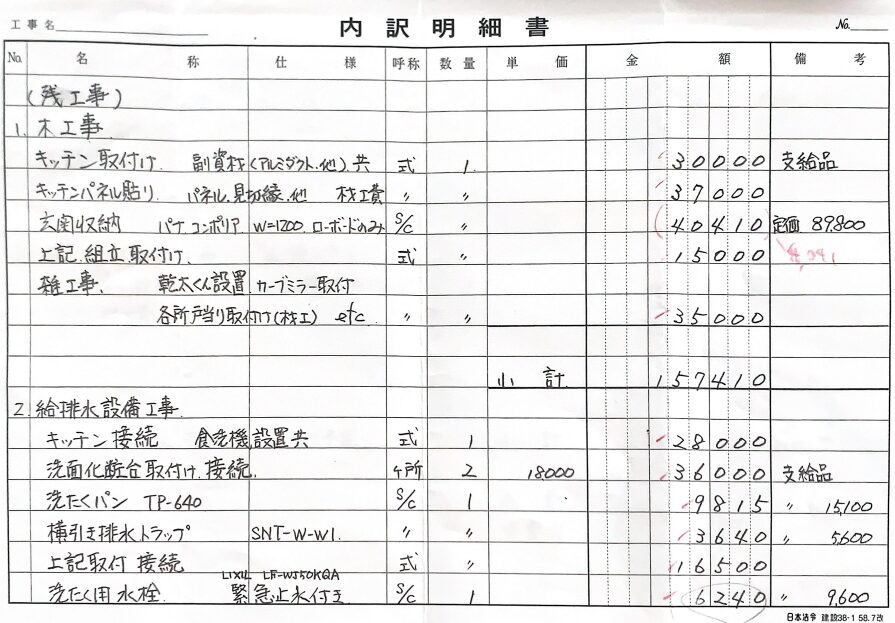 工事名
内訳明細書
No.
No. 名称 仕様 呼称 数量 単価 金額 備考
(残工事)
1. 木工事
キッチン取付け 副資材(アルミダクト.他)共 式 1 30000 支給品
キッチンパネル貼り パネル.見切縁.他 材工費 〃 〃 37000
玄関収納 パナ コンポリア W=1200 ローボードのみ S/C 〃 40410 定価 89,800
上記.組立.取付け. 式 〃 15000
雑工事. 乾太くん設置.カーブミラー取付
各所戸当り取付け(材工) etc 〃 〃 35000
小計 157410
2. 給排水設備工事
キッチン接続 食洗機設置共 式 1 28000
洗面化粧台取付け.接続. ケ所 2 18000 36000 支給品
洗たくパン TP-640 S/C 1 9815 〃 15,100
横引き排水トラップ SNT-W-W1. 〃 〃 3640 〃 5,600
上記取付 接続 式 〃 16500
LIXIL LF-WJ50KQA
洗たく用水栓 緊急止水付き S/C 1 6240 〃 9,600
日本法令 建設38-1 58.7改